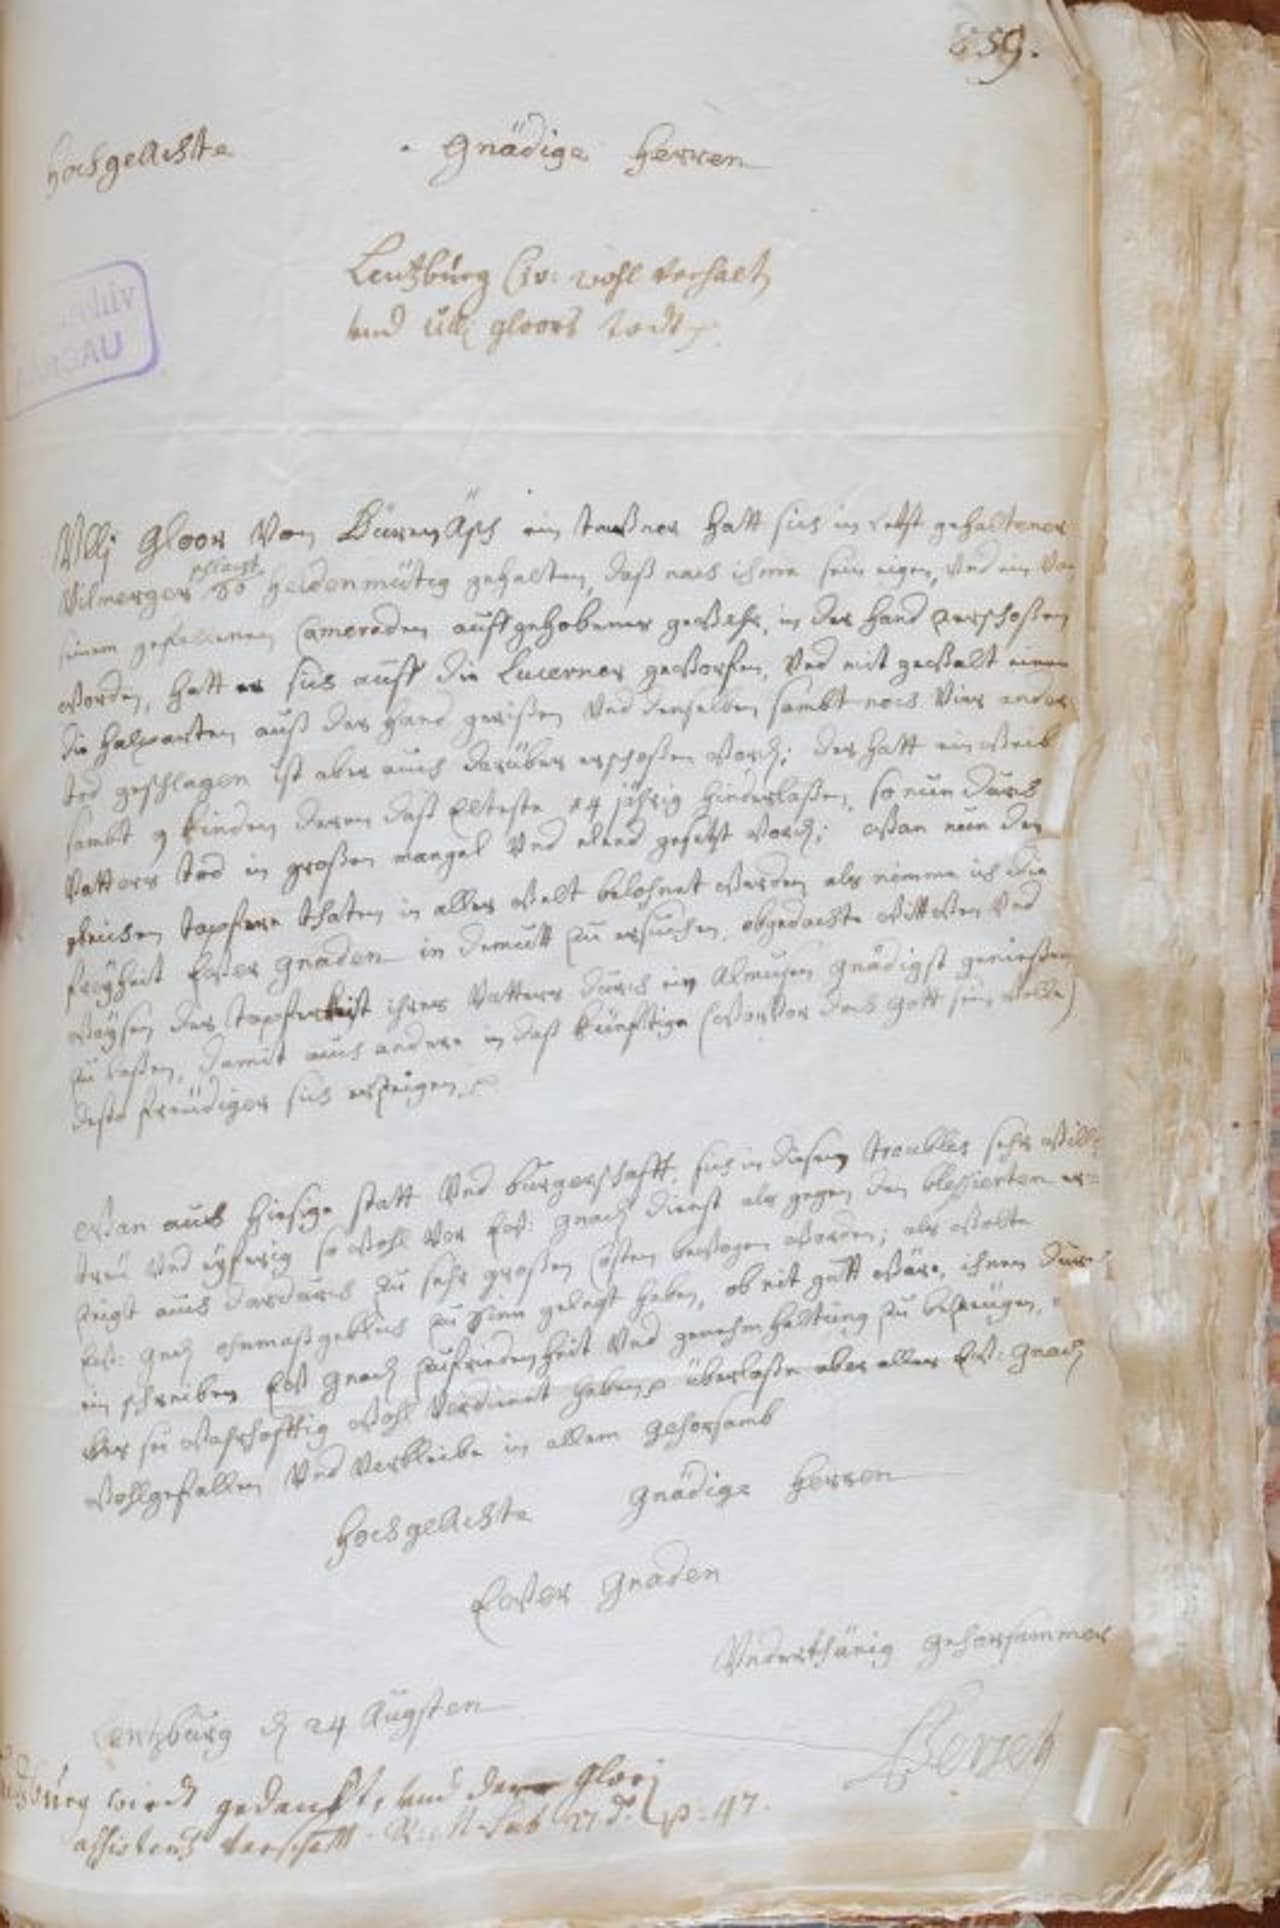 859.
Hochgeachte Gnädige Herren
Lentzburg Civ: wohl verhalt,
und Ulli gloors todt
Archiv
AARGAU
Ullj Gloor Von Büren Äsch ein Traßner hatt sich in letst gehaltener
Vilmerger schlacht So heldenmütig gehalten, daß nach ihme sein eigen, Und ein Von
seinem gefallenen Cameraden auffgehobenes gewehr, in der Hand zerschoßen
worden, hatt er sich auff die Lucerner geworffen, Und mit gewalt einem
die Halparten auß der Hand gerißen Und denselben sambt noch Vier andern
tod geschlagen ist aber auch darüber erschoßen worden; der hatt ein weib
sambt 9 kinden deren daß Elteste 14 jährig hinderlaßen, so nun durch
Vatters tod in großen mangel Und elend gesetzt worden; wan nun der
gleichen tapfere thaten in aller welt belohnet werden als nimme ich die
freyheit Ewer Gnaden in demutt zu ersuchen, obgedachte wittwen Und
waysen der tapferkeit ihres Vatters durch ein Almusen gnädigst genießen
zu laßen, damit auch andere in daß künfftige (warvor doch Gott sein wolle)
desto freüdiger sich erzeigen.
Wan auch hiesige statt Und burgerschafft, sich in diesem troubles sehr
treü Und eyferig so wohl vor Ew: Gnaden dienst als gegen den blessierten er=
zeigt auch dardurch zu sehr großen Cösten bewogen worden; als wolte
Ew: Gnaden ohnmaßgeblich zu Sinn gelegt haben, ob nit gutt wäre, ihnen durch
ein schreiben Ew: Gnaden zufriedenheit Und genehmhaltung zu bezeügen,
sie warhafftig wohl Verdient haben, überlaße aber alles Ew: Gnaden
wohlgefallen Und Verbleibe in allem gehorsamb
Hochgeachte Gnädige Herren
Ewer Gnaden
Underthänig gehorsammer
Lentzburg den 24 Augsten
Lentzburg wirdt gedanckt, und den Glorj
assistentz verschafft. R. M. sub 27 d. p: 47.